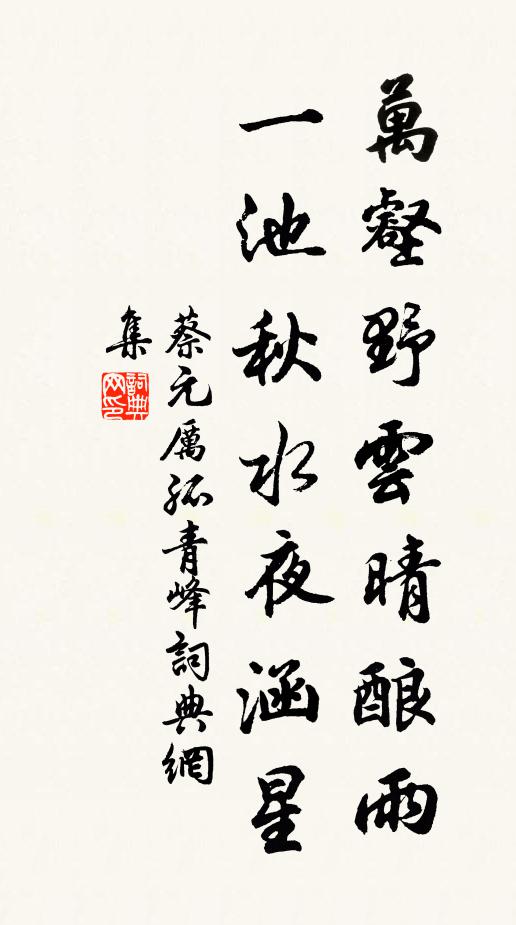 萬壑野雲晴酿雨
一池秋水夜涵星
蔡元厲孤青峰詞典網
集
詞典网印